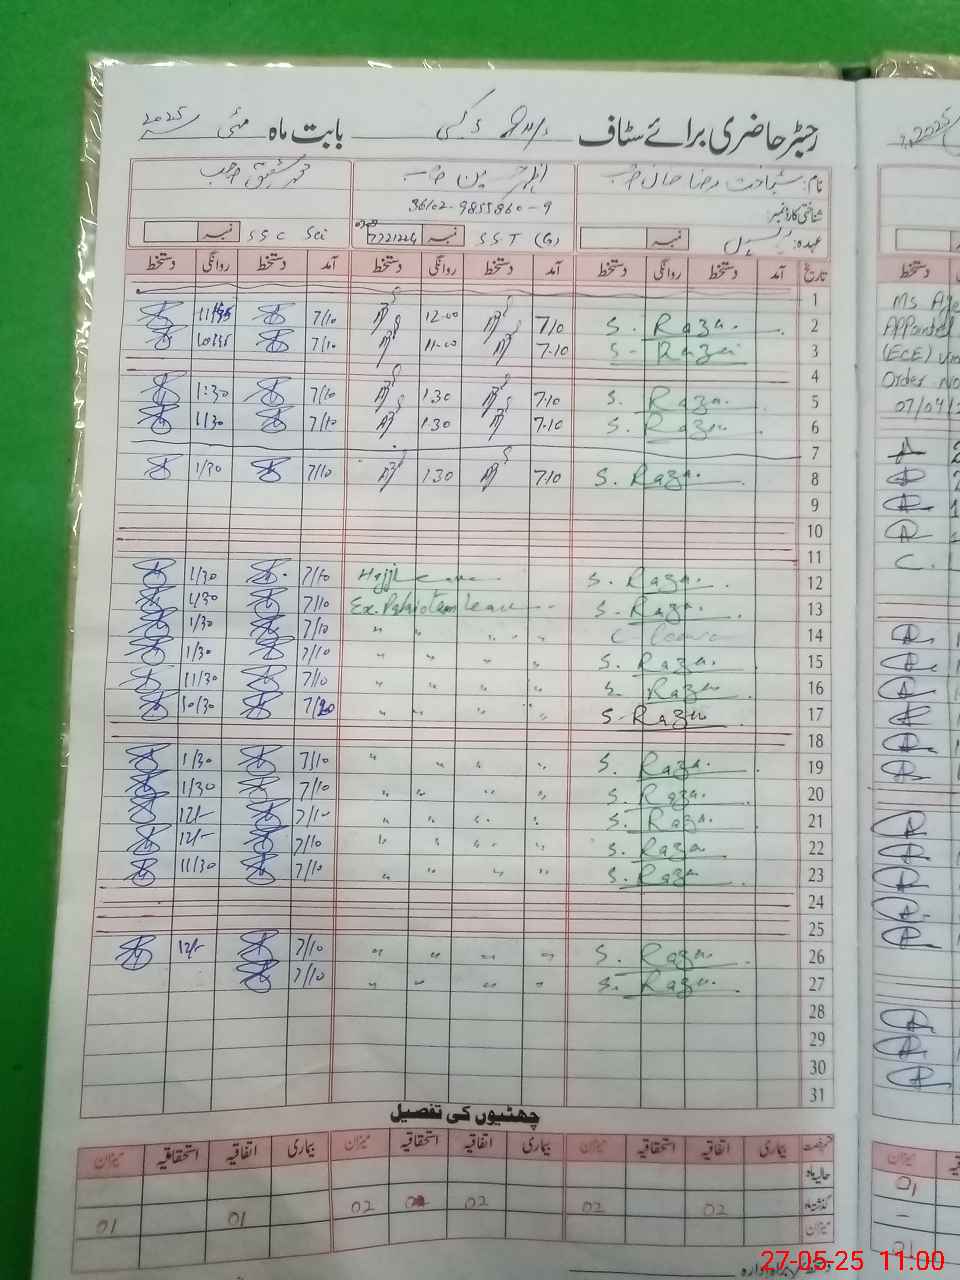 رجسٹر حاضری برائے سٹاف بابت ماہ مئی 2025
نام: شہباخت رضا خان صاحب اظہر حسین صاحب محمد شفیق صاحب
شناختی کارڈ نمبر: 36102-9855860-9
عہدہ: نمبر S S T (G) نمبر S S C Sci نمبر
تاریخ آمد دستخط روانگی دستخط آمد دستخط روانگی دستخط آمد دستخط روانگی دستخط
1
2 S. Raza. 7/10 12-00 7/10
3 S. Raza 7-10 11-00 7/10
4
5 S. Raza. 7-10 1.30 7/10 1:30
6 S. Raza 7-10 1.30 7/10 1/30
7
8 S. Raza. 7-10 1.30 7/10 1/30
9
10
11
12 S. Raza. Hajj Leave 7/10 1/30
13 S. Raza. Ex. Pakistan Leave 7/10 1/30
14 C Leave " " " " 7/10 1/30
15 S. Raza. " " " " 7/10 1/30
16 S. Raza " " " " 7/10 11/30
17 S. Raza " " " " 10/30
18
19 S. Raza. " " " " 7/10 1/30
20 S. Raza. " " " " 7/10 1/30
21 S. Raza. " " " " 7/10 12/-
22 S. Raza " " " " 7/10 12/-
23 S. Raza " " " " 7/10 11/30
24
25
26 S. Raza. " " " " 7/10 12/-
27 S. Raza. " " " " 7/10
28
29
30
31
چھٹیوں کی تفصیل
بیماری اتفاقیہ استحقاقیہ میزان بیماری اتفاقیہ استحقاقیہ میزان بیماری اتفاقیہ استحقاقیہ میزان
حالیہ ماہ
گذشتہ ماہ 02 02 02 02 01 01
میزان
27-05-25 11:00
2025
دستخط
Ms
(ECE)
Order No
07/04/
میزان
01
-
01